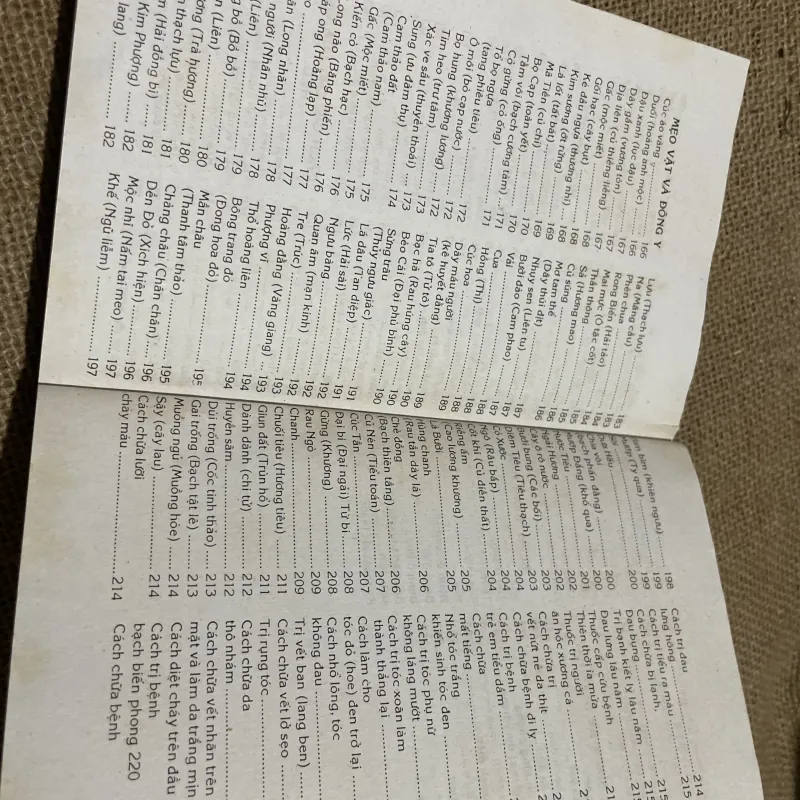 MẸO VẶT VÀ ĐÔNG Y
Cúc áo vàng
Duối (hoàng anh mộc) 166
Đậu xanh (lục đậu) 166
Dây gắm (vương tôn) 167
Địa liền (củ thiêng liêng)
Gấc (mộc miết) 167
Gối hạc (cây bụt) 168
Ké đầu ngựa (thương nhĩ)
Kim sương (ớt rừng) 168
Lá lốt (tất bát) 169
Mã Tiền (củ chi) 169
Bọ Cạp (toàn yết) 170
Tằm vôi (bạch cương tàm) 171
Cỏ gừng (cỏ ống) 171
Tổ bọ ngựa
(tang phiêu tiêu)
Ô môi (bồ cạp nước) 172
Bọ hung (khương lương) 172
Tim heo (trư tâm) 173
Xác ve sầu (thuyền thoái) 173
Sung (ưu đàm thụ) 174
Cam thảo đất
(Cam thảo nam)
Gấc (Mộc miết) 175
Kiến cò (Bạch hạc) 175
ong não (Băng phiến) 176
áp ong (Hoàng lạp) 176
ãn (Long nhãn) 177
người (Nhân nhũ) 178
(Liên) 178
g bồ (Bồ bồ) 179
n (Liên) 179
ương (Trà hương) 180
n thạch lựu) 180
m (Hải đồng bì) 181
Kim Phượng) 181
lang) 182
Lựu (Thạch lựu) 183
Na (Mãng cầu)
Phèn chua
Rong Biển (Hải tảo)
Mai mực (Ô tặc cốt)
Thần thông
Sả (Hương mao)
Củ súng 185
Mơ tam thể
(Dây thúi địt) 186
Nhụy sen (Liên tu)
Bưởi đào (Cam phao) 187
Vải 187
Cua 187
Hồng (Thị) 188
Cúc hoa 188
Dây máu người
(kê huyết đằng) 189
Tía tô (Tử tô)
Bạc hà (Rau húng cây) 189
Bèo Cái (Đại phù bình) 190
Sừng trâu
(Thủy ngưu giác) 190
Lá dâu (Tan diệp) 191
Lức (Hải sài) 191
Ngưu bàng 192
Quan âm (mạn kinh) 192
Tre (Trúc) 192
Hoàng đằng (Vàng giang) 193
Phượng vĩ 193
Thổ hoàng liên 194
Bông trang đỏ
(Đong hoa đỏ) 194
Mần châu
(Thanh tâm thảo) 195
Chàng châu (Chân chân) 195
Dền Đỏ (Xích hiện) 196
Mộc nhĩ (Nấm tai mèo) 196
Khế (Ngũ liêm) 197
197
(khiên ngưu) 198
(Tỳ qua) 199
199
200
200
(khổ qua)
201
Hương 202
202
203
Bưởi bung (Các bối) 203
Diêm Tiêu (Tiêu thạch)
Cỏ Xước 204
Ngô (Râu bắp) 204
cốt khí (Củ điền thất)
Riềng ấm
(Cao lương khương) 205
Lá Bưởi 205
Húng chanh
(Rau tần dày lá) 206
Chè đồng
(Bạch thiên tầng) 206
Củ Nén (Tiểu toán) 207
Cúc Tần 207
Đại bi (Đại ngải) Từ bi 208
Gừng (Khương) 208
Rau Ngò 209
Chanh 209
Chuối tiêu (Hương tiêu) 211
Giun đất (Trùn hổ) 211
Dành dành (chi tử) 212
Huyền sâm 212
Dùi trống (Cốc tinh thảo) 213
Gai trống (Bạch tật lê) 213
Muồng ngủ (Muồng hòe) 214
Sậy (cây lau) 214
Cách chữa lưỡi
chảy máu 214
Cách trị đau
lưng hông 214
Cách trị tiểu ra máu 215
Cách chữa bị lạnh
Đau bụng 215
Trị bệnh kiết lỵ lâu năm
Đau lưng lâu năm
Thuốc cấp cứu bệnh
Thiên thời ỉa mửa
Thuốc trị người
ăn hóc xương cá
Cách chữa trị
vết nứt nẻ da thịt
Cách chữa bệnh đi lỵ
Cách trị bệnh
trẻ em tiểu dầm
Cách chữa
mất tiếng
Nhổ tóc trắng
khiến sinh tóc đen
Cách trị tóc phụ nữ
không láng mướt
Cách trị tóc xoăn làm
thành thẳng lại
Cách làm cho
tóc đỏ (hoe) đen trở lại
Cách nhổ lông, tóc
không đau
Trị vết ban (lang ben)
Cách chữa vết lở sẹo
Trị rụng tóc
Cách chữa da
thô nhám
Cách chữa vết nhăn trên
mặt và làm da trắng mịn
Cách diệt chấy trên đầu
Cách trị bệnh
bạch biến phong 220
Cách chữa bệnh